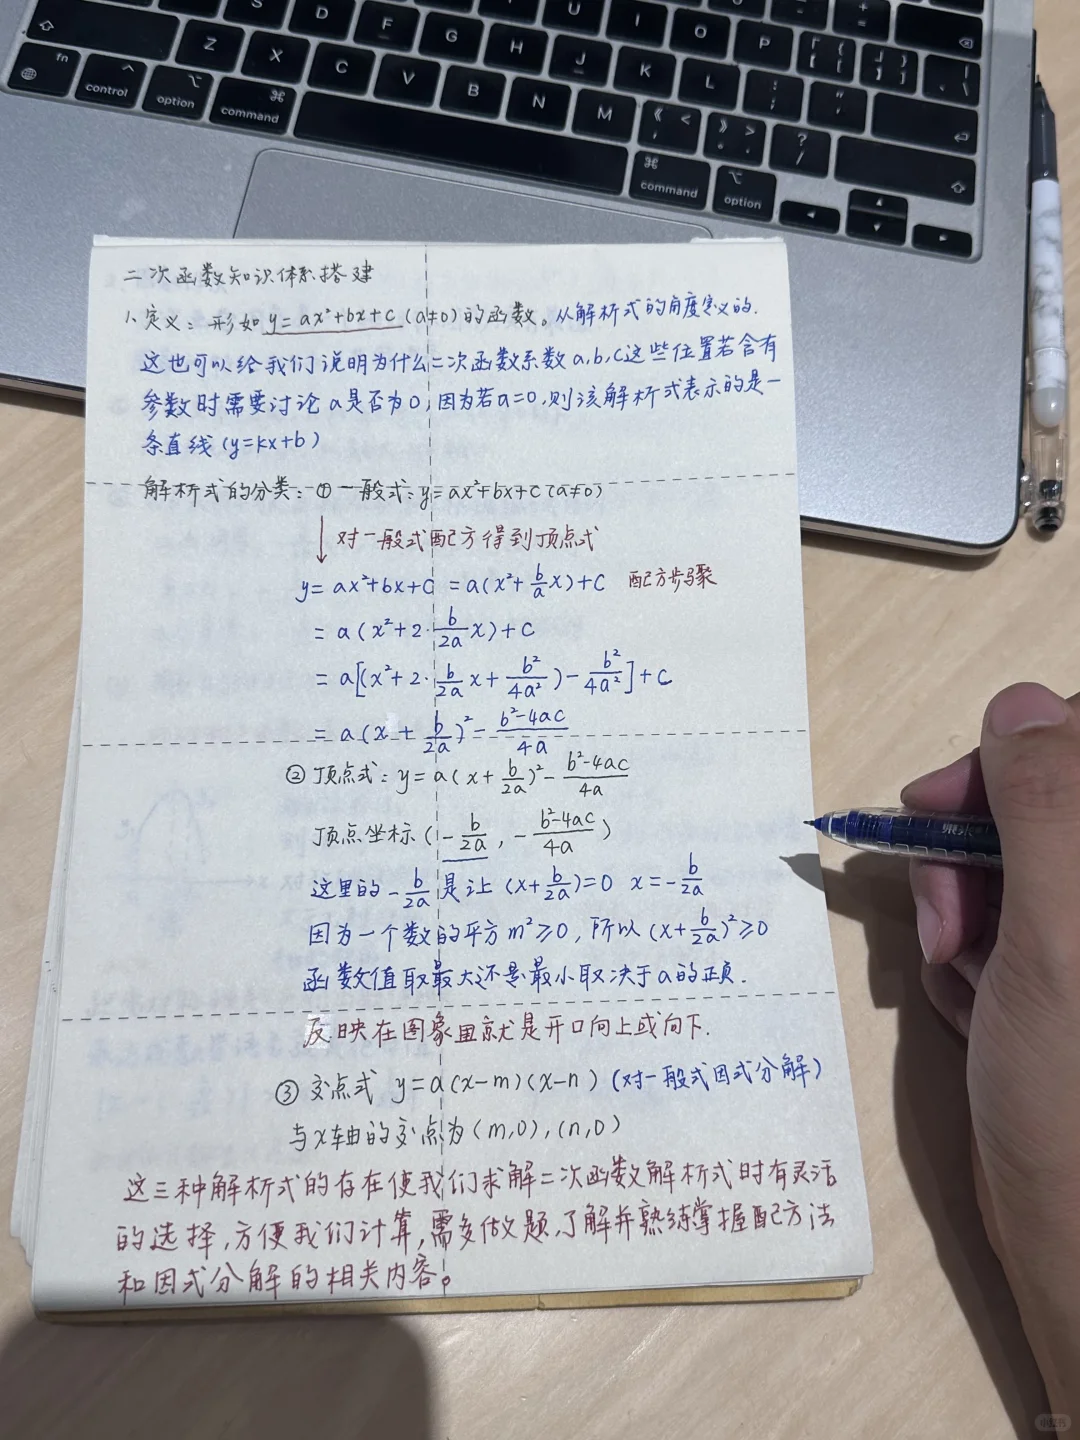 S D F G H J K L
U I O P
Z X C V B N M
fn
control
option
command
command
option
二次函数知识体系搭建
1、定义：形如 y=ax²+bx+c (a≠0)的函数。从解析式的角度定义的.
这也可以给我们说明为什么二次函数系数a,b,c这些位置若含有
参数时需要讨论a是否为0,因为若a=0,则该解析式表示的是一
条直线(y=kx+b)
解析式的分类：①一般式：y=ax²+bx+c(a≠0)
↓对一般式配方得到顶点式
y=ax²+bx+c =a(x²+b/a x)+c 配方步骤
=a(x²+2·b/2a x)+c
=a[(x²+2·b/2a x+b²/4a²)-b²/4a²]+c
=a(x+b/2a)²-b²-4ac/4a
②顶点式：y=a(x+b/2a)²-b²-4ac/4a
顶点坐标(-b/2a,-b²-4ac/4a)
这里的-b/2a是让(x+b/2a)=0 x=-b/2a
因为一个数的平方m²≥0,所以(x+b/2a)²≥0
函数值取最大还是最小取决于a的正负.
反映在图象里就是开口向上或向下.
③交点式 y=a(x-m)(x-n)(对一般式因式分解)
与x轴的交点为(m,0),(n,0)
这三种解析式的存在使我们求解二次函数解析式时有灵活
的选择,方便我们计算,需多做题,了解并熟练掌握配方法
和因式分解的相关内容。
小红书